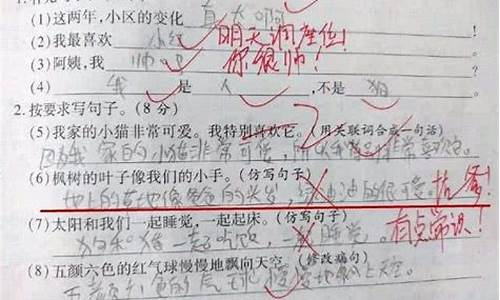 (1)这两年,小区的变化真大啊
(2)我最喜欢 小红 明天调座位!
(3)阿姨,我 帅吧 你很帅!
(4) 我 是 人 ,不是 狗
2.按要求写句子。(8 分)
(5)我家的小猫非常可爱。我特别喜欢它。(用关联词合成一句话)
因为我家的小猫非常可爱,所以我特别非常喜欢它。
(6)枫树的叶子像我们的小手。(仿写句子)
地上的草地像爸爸的头发,绿油油的很可爱。
(7)太阳和我们一起睡觉,一起起床。(仿写句子) 有点常识!
狗和猪一起吃饭,一起睡觉。
(8)五颜六色的红气球慢慢地飘向天空。(修改病句)
五颜六色的气球慢慢地飘上天空。